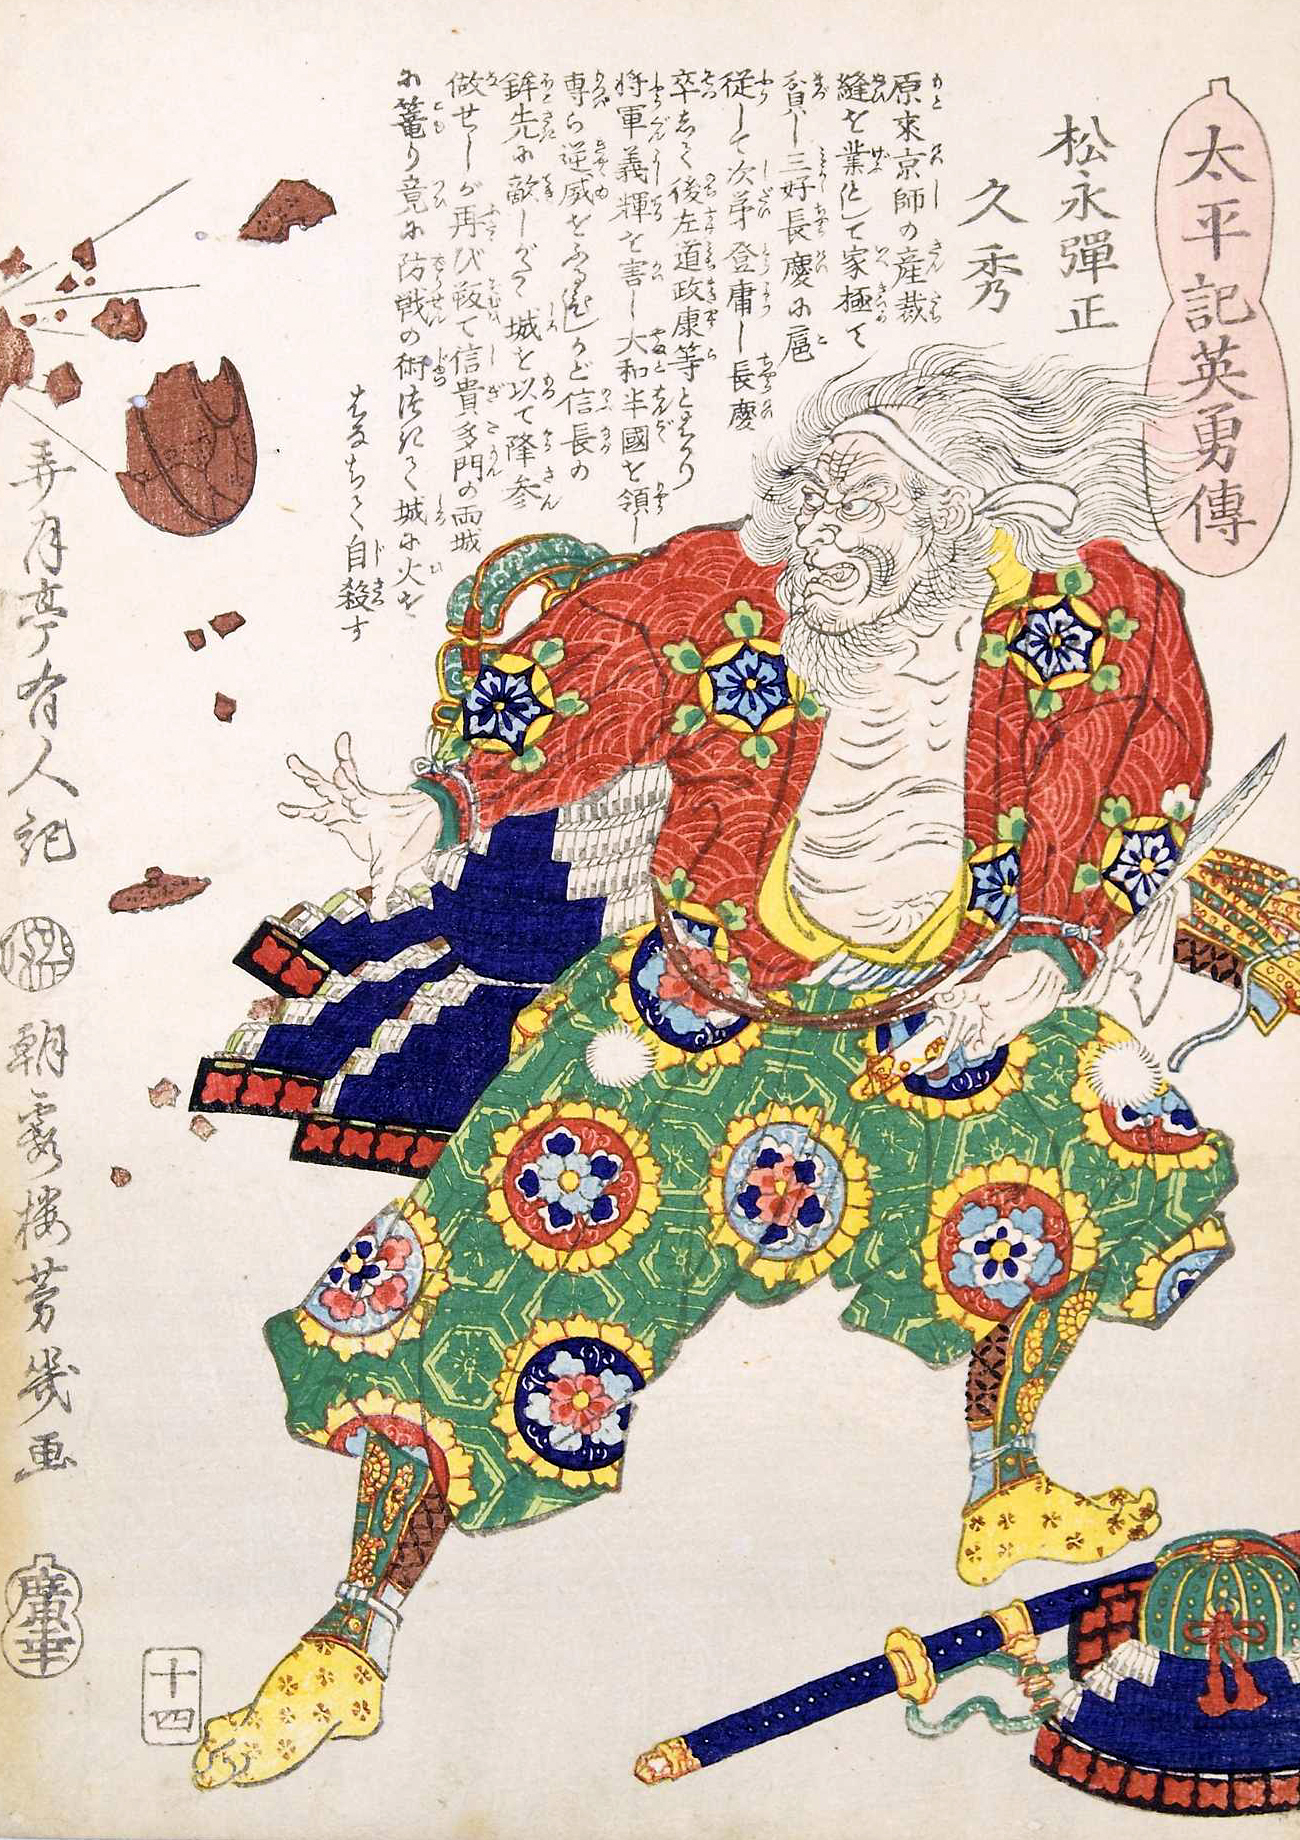 太平記英勇傳
松永彈正
久秀
原來京師の産裁
縫を業として家極て
貧し三好長慶に扈
従して次第登庸し長慶
卒して後左道政康等とはかり
将軍義輝を害し大和半國を領し
専ら逆威をふるふといへど信長の
鉾先に敵しがたく城を以て降参
做せしが再び叛て信貴多門の両城
に篭り竟に防戦の術つきて城に火を
はなちて自殺す
弄月亭有人記
朝霞楼芳幾画
廣
十四